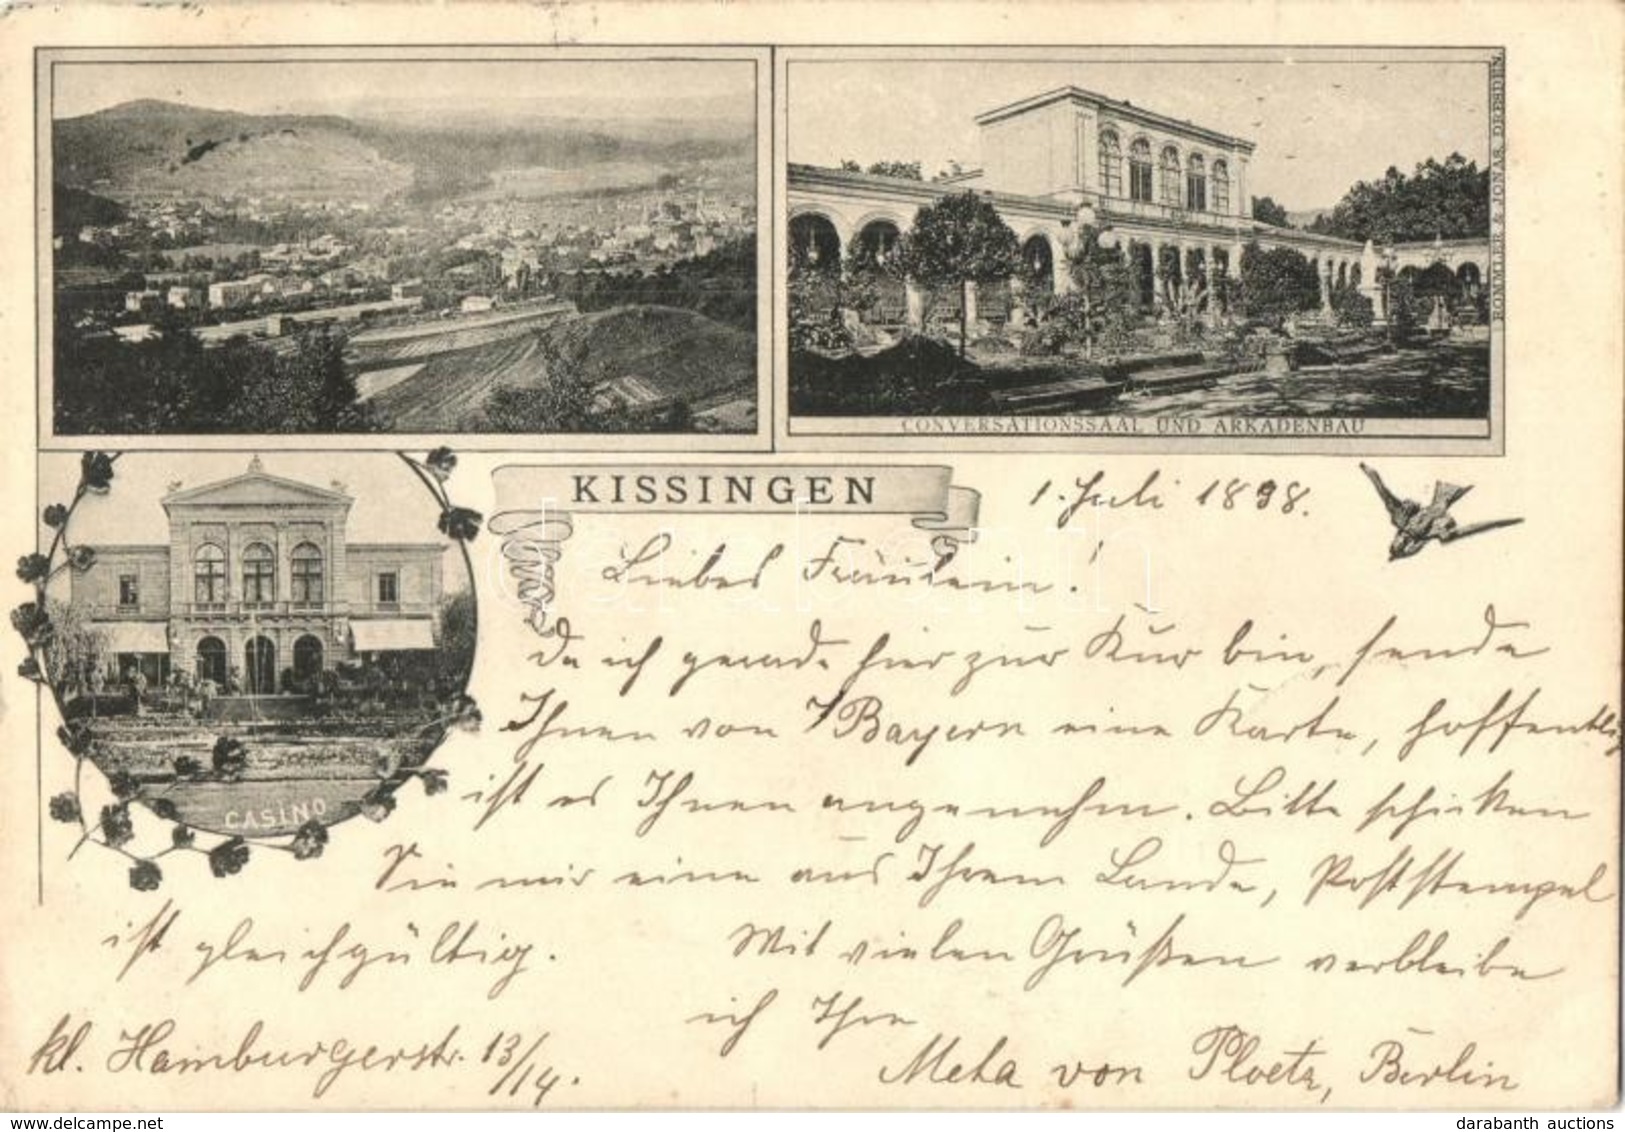 CONVERSATIONSSAAL UND ARKADENBAU
ROMMLER & JONAS, DRESDEN.
KISSINGEN
CASINO
1. Juli 1898.
Liebes Fräulein!
Da ich gerade hier zur Kur bin, sende
Ihnen von Bayern eine Karte, hoffentlig
ist es Ihnen angenehm. Bitte schicken
Sie mir eine aus Ihrem Lande, Poststempel
ist gleichgültig. Mit vielen Grüßen verbleibe
ich Ihre
Meta von Ploetz, Berlin
kl. Hamburgerstr. 13/14.
darabanth
darabanth auctions